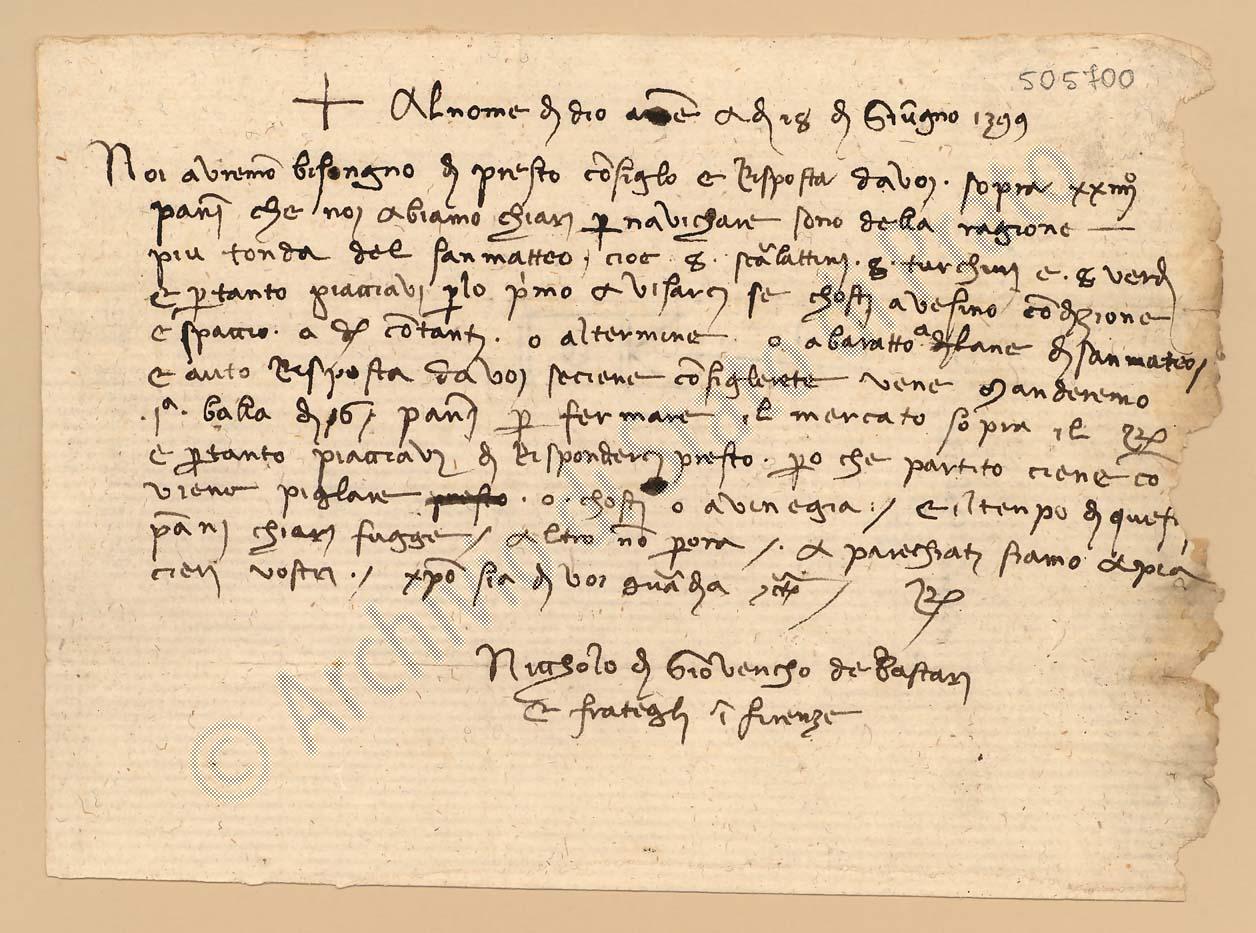 505700
+ Al nome di dio amē & adi 18 di Giūgno 1399
Noi avremo bisongno di presto cōsiglo e Risposta davoi · sopra xxiiijº
panni che noi abiamo chiari p navichare sono della ragione —
piu tonda del sanmatteo, cioe 8 · scarlattini · 8 · turchini e · 8 verdi
e ptanto piacciavi plo pimo avisarci se chosti avesino cōdizione
e spaccio · a cōtanti · o altermine · o abaratto di lane di sanmateo /
e auto Risposta davoi seciene cōsiglerete vene manderemo
· 1ª · balla di 16 / panni p fermare il mercato sopra il
e ptanto piacciavi di Risponderci presto · po che partito ciene cō
viene piglare presto · o · chosti o avinegia · // e iltenpo di questi
pāni chiari fugge / altro nō pora / · aparechiati siamo apia
cieri vostri · / xpō sia di voi guardia
Niccholo di Giovencho de Bastari
e frategli ī firenze
© Archivio di Stato di Prato